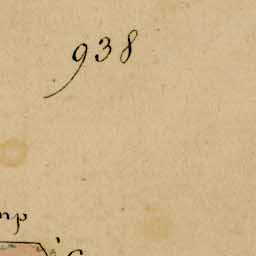 938
mp